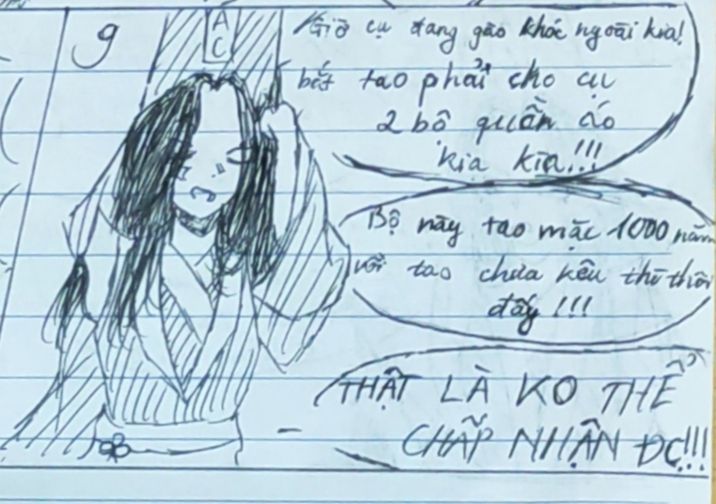 9
A
C
Giờ cụ đang gào khóc ngoài kia!
bắt tao phải cho cụ
2 bộ quần áo
kia kìa!!!
Bộ này tao mặc 1000 năm
rồi tao chưa kêu thì thôi
đấy !!!
THẬT LÀ KO THỂ
CHẤP NHẬN ĐC!!!